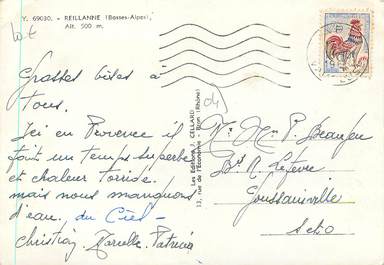 Y. 69030. - REILLANNE (Basses-Alpes)
Alt. 500 m.
Grosses bises à
tous.
Ici en Provence il
fait un temps superbe
et chaleur torride.
mais nous manquons
d'eau. du Ciel -
Christian Marcelle Patricia
Les Editions J. CELLARD
13, rue de l'Economie - Bron (Rhône)
Mr Mme P. Beaufeu
Bd A. Lefèvre
Goussainville
S et O